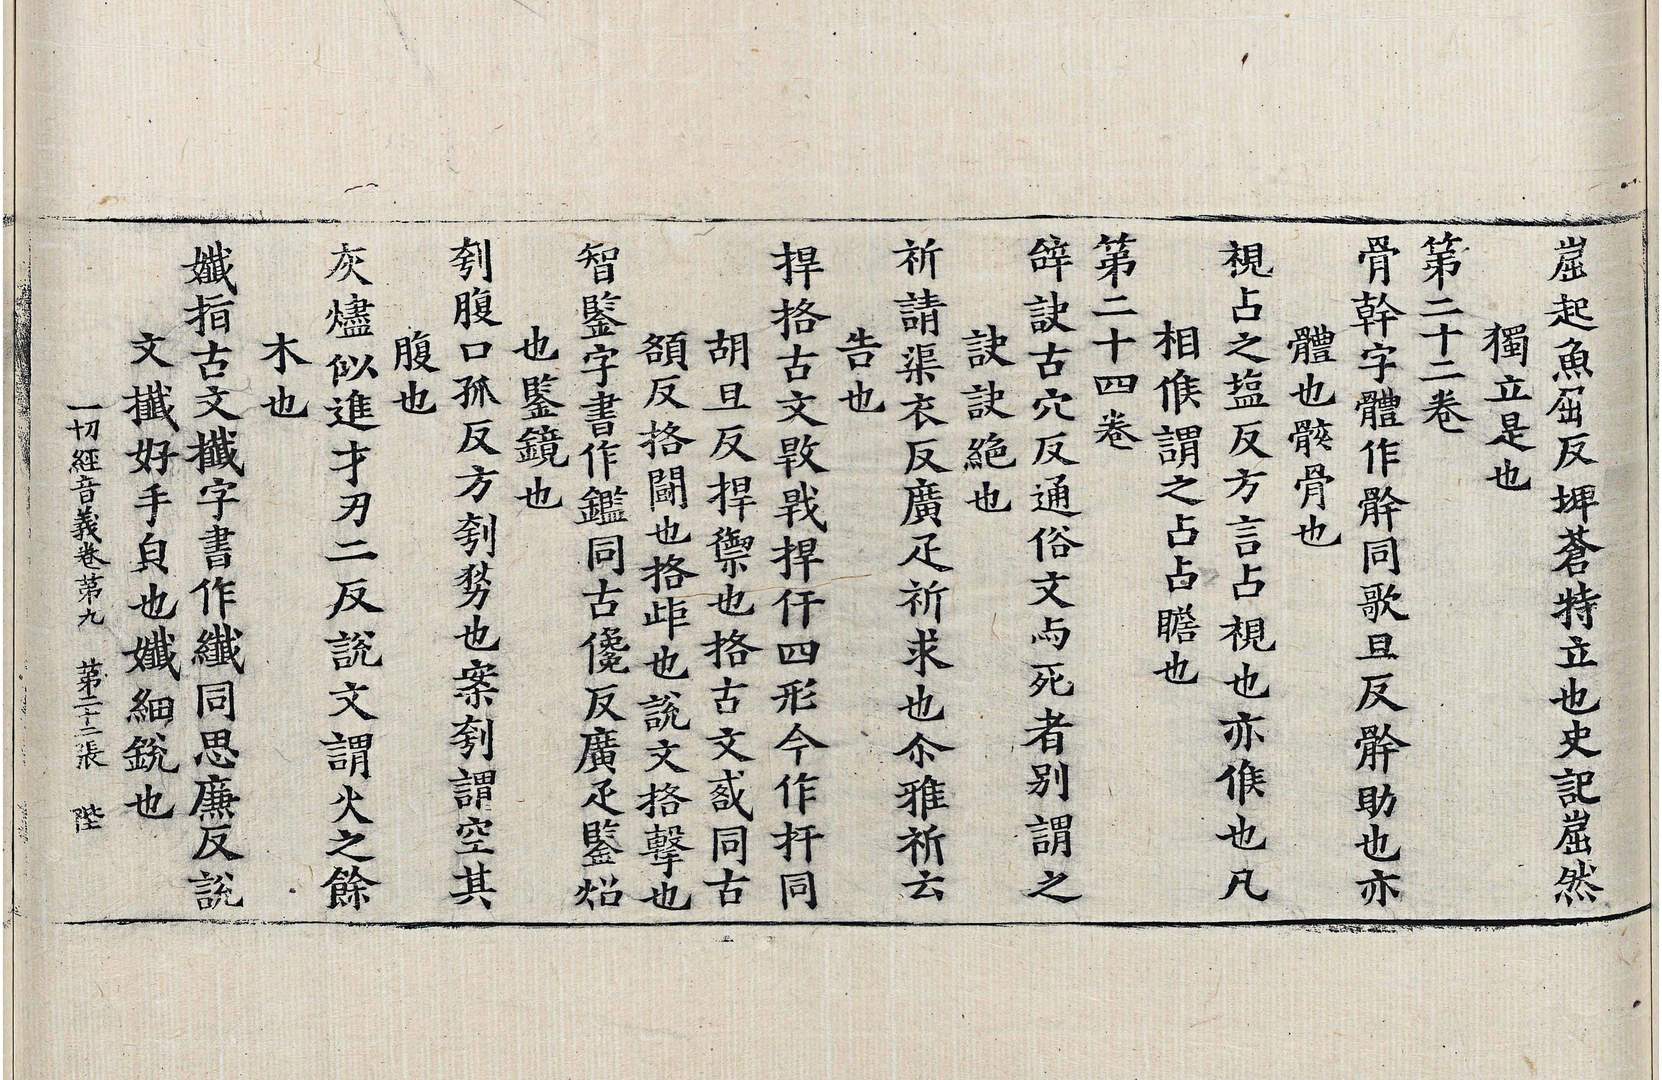 崫起魚屈反埤蒼特立也史記崫然
獨立是也
第二十二卷
骨幹字體作骭同歌旦反骭助也亦
體也骸骨也
視占之塩反方言占視也亦候也凡
相候謂之占占瞻也
第二十四卷
辞訣古穴反通俗文与死者别謂之
訣訣絶也
祈請渠衣反廣疋祈求也尒雅祈云
告也
捍格古文戰捍仟四形今作扞同
胡旦反捍禦也挌古文㦯同古
頟反挌鬪也挌歫也說文挌擊也
智鍳字書作鑑同古儳反廣疋鍳炤
也鍳鏡也
刳腹口孤反方刳剺也案刳謂空其
腹也
灰燼似進才刃二反說文謂火之餘
木也
孅指古文攕字書作纖同思廉反說
文攕好手皃也孅細銳也
一切經音義卷第九 第二十二張 陛